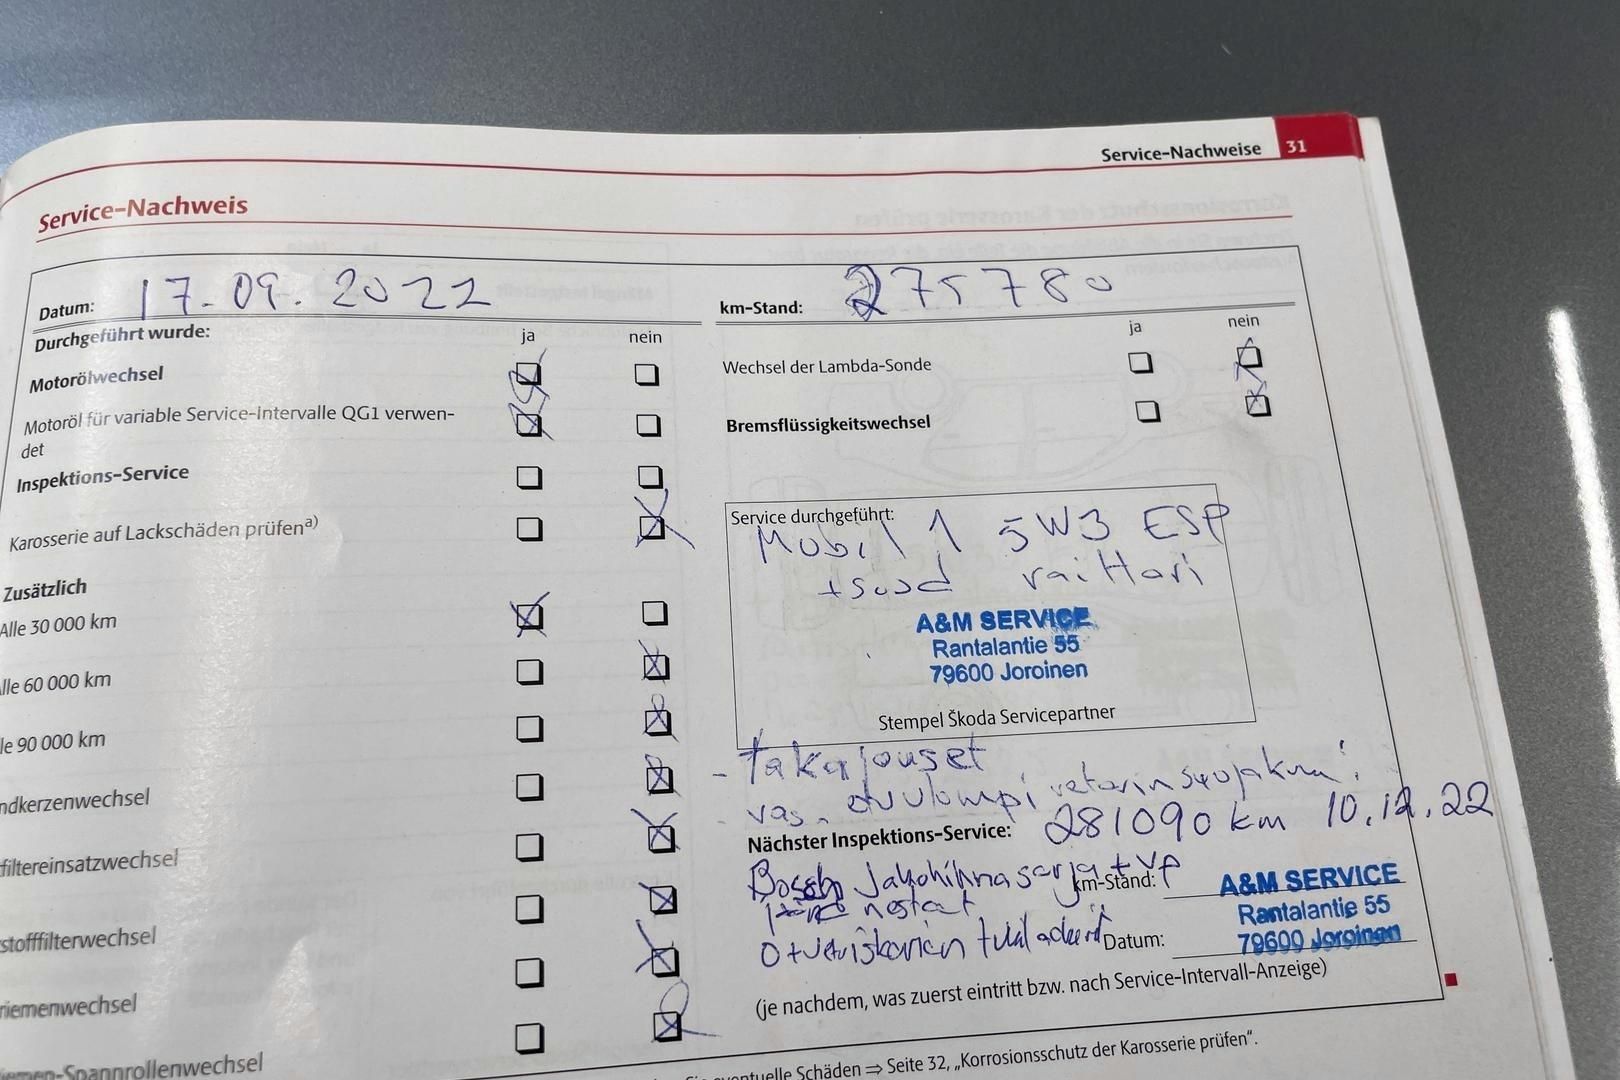 Service-Nachweise 31
Service-Nachweis
Datum: 17.09.2022
km-Stand: 275780
Durchgeführt wurde:
ja nein
Motorölwechsel
Motoröl für variable Service-Intervalle QG1 verwen-
det
Inspektions-Service
Karosserie auf Lackschäden prüfena)
Zusätzlich
Alle 30 000 km
lle 60 000 km
le 90 000 km
ndkerzenwechsel
filtereinsatzwechsel
stofffilterwechsel
riemenwechsel
iemen-Spannrollenwechsel
ja nein
Wechsel der Lambda-Sonde
Bremsflüssigkeitswechsel
Service durchgeführt:
Mobil 1 5W3 ESP
+suod raittari
A&M SERVICE
Rantalantie 55
79600 Joroinen
Stempel Škoda Servicepartner
- Takajouset
- vas.
Nächster Inspektions-Service: 281090 km 10.12.22
Jakohihnasarja + VP
km-Stand:
A&M SERVICE
nestat
Rantalantie 55
Datum:
79600 Joroinen
(je nachdem, was zuerst eintritt bzw. nach Service-Intervall-Anzeige)
eventuelle Schäden ⇒ Seite 32, „Korrosionsschutz der Karosserie prüfen“.